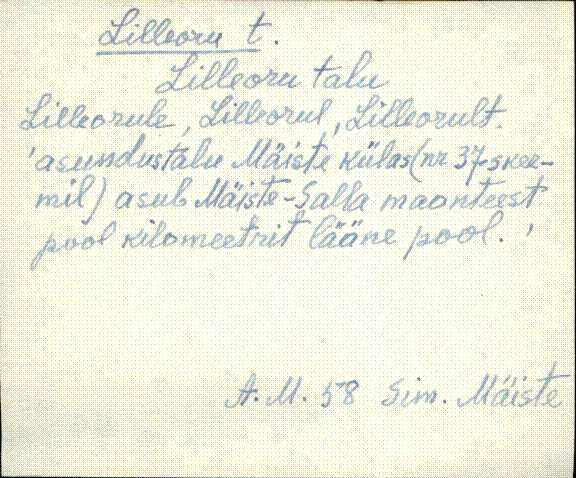 Lilleoru t.
Lilleoru talu
Lilleorule, Lilleorul, Lilleorult.
'asundustalu Mäiste külas (nr 37-skee-
mil) asub Mäiste-Salla maanteest
pool kilomeetrit lääne pool.'
A.M. 58 Sim. Mäiste